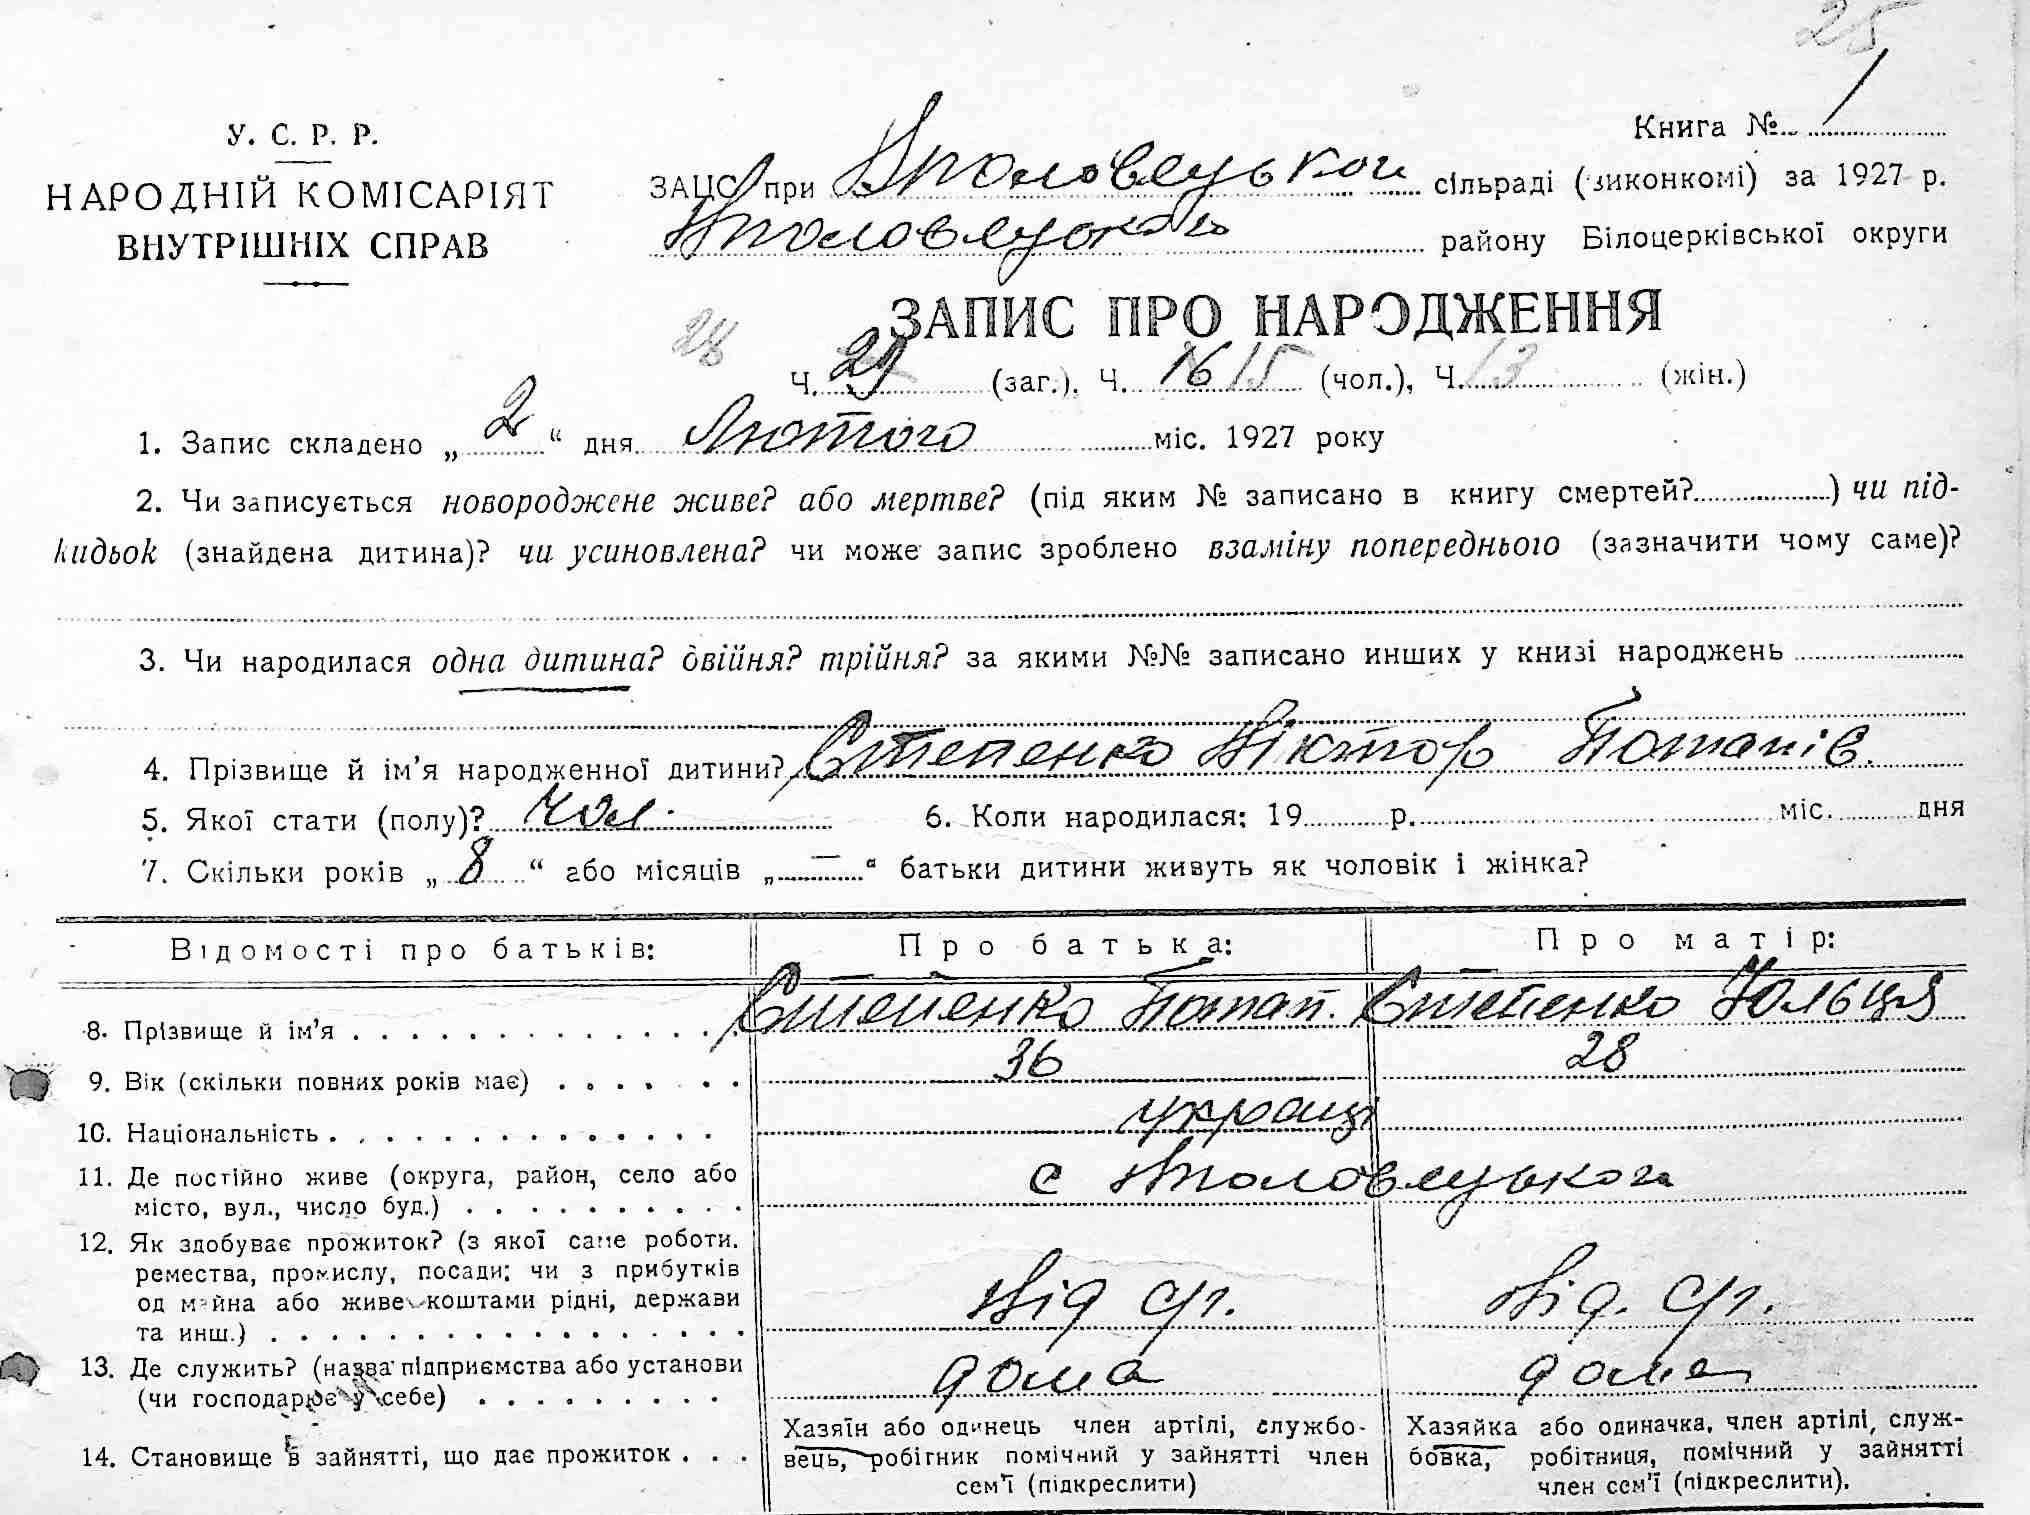 25
У. С. Р. Р.
НАРОДНІЙ КОМІСАРІЯТ
ВНУТРІШНІХ СПРАВ
Книга № 1
ЗАЦС при Половецькой сільраді (виконкомі) за 1927 р.
Половецького району Білоцерківської округи
ЗАПИС ПРО НАРОДЖЕННЯ
28
Ч. 29 (заг.), Ч. 16 15 (чол.), Ч. 13 (жін.)
1. Запис складено „ 2 “ дня Лютого міс. 1927 року
2. Чи записується новороджене живе? або мертве? (під яким № записано в книгу смертей?..........) чи під-
кидьок (знайдена дитина)? чи усиновлена? чи може запис зроблено взаміну попереднього (зазначити чому саме)?
3. Чи народилася одна дитина? двійня? трійня? за якими №№ записано инших у книзі народжень
4. Прізвище й ім’я народженної дитини? Степенко Віктор Потапів.
5. Якої стати (полу)? чол. 6. Коли народилася: 19........р. ........ міс. ........ дня
7. Скільки років „ 8 “ або місяців „ — “ батьки дитини живуть як чоловік і жінка?
Відомості про батьків: Про батька: Про матір:
8. Прізвище й ім’я . . . Степенко Потап. Степенко Юльця
9. Вік (скільки повних років має) . . . 36 28
10. Національність . . . україці
11. Де постійно живе (округа, район, село або
місто, вул., число буд.) . . . с Половецького
12. Як здобуває прожиток? (з якої саме роботи,
ремества, промислу, посади; чи з прибутків
од майна або живе коштами рідні, держави
та инш.) . . . Від с/г. Від. с/г.
13. Де служить? (назва підприємства або установи
(чи господарює у себе) . . . дома дома
14. Становище в зайнятті, що дає прожиток . . .
Хазяїн або одинець член артілі, службо-
вець, робітник помічний у зайнятті член
сем’ї (підкреслити)
Хазяйка або одиначка, член артілі, служ-
бовка, робітниця, помічний у зайнятті
член сем’ї (підкреслити).